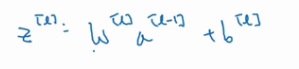 z^[l] = W^[l] a^[l-1] + b^[l]